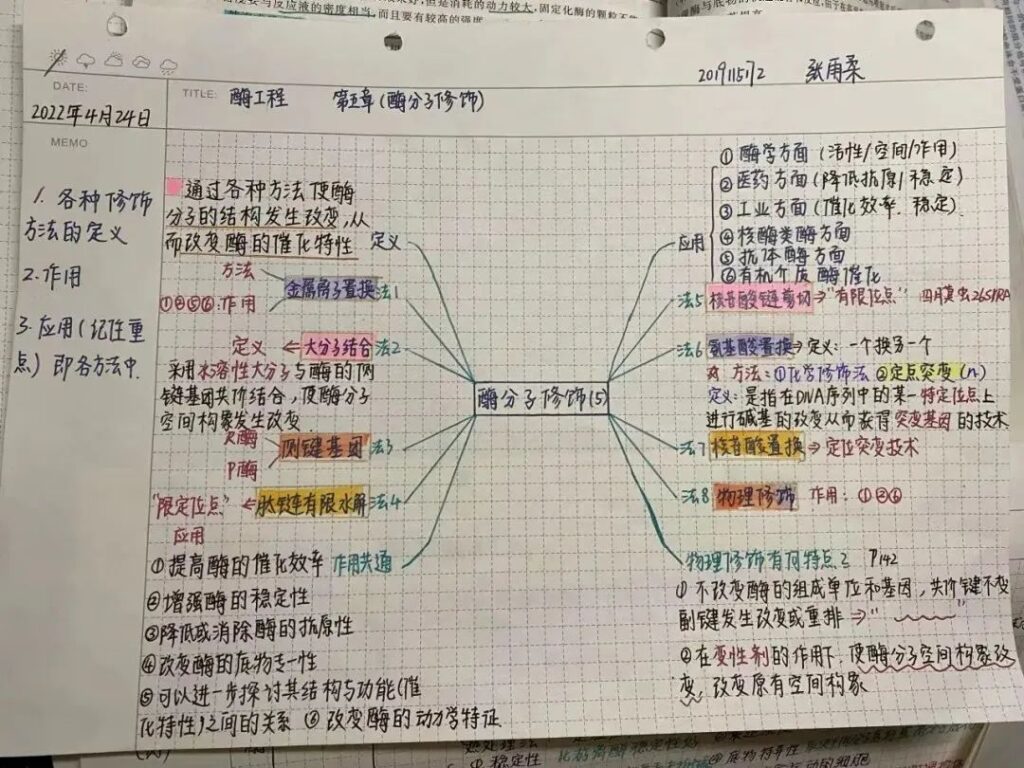 要与反应液的密度相当,而且要有较高的强度
但是消耗的动力较大,固定化酶的颗粒不
20191151172 张雨柔
DATE:
2022年4月24日
TITLE: 酶工程 第五章(酶分子修饰)
MEMO
1. 各种修饰
方法的定义
2.作用
3.应用(记性重
点) 即各方法中.
通过各种方法使酶
分子的结构发生改变,从
而改变酶的催化特性 定义
方法
金属离子置换 法1
①②⑤⑥.作用
定义 ← 大分子结合 法2
采用水溶性大分子与酶的侧
链基团共价结合,使酶分子
空间构象发生改变.
R酶
侧键基因 法3
P酶
"限定位点" ← 肽链有限水解 法4
应用
①提高酶的催化效率 作用共通
②增强酶的稳定性
③降低或消除酶的抗原性
④改变酶的底物专一性
⑤可以进一步探讨其结构与功能(催
化特性)之间的关系 ⑥ 改变酶的动力学特征
酶分子修饰(5)
应用
① 酶学方面 (活性/空间/作用)
② 医药方面 (降低抗原/稳定)
③ 工业方面 (催化效率. 稳定)
④ 核酶类酶方面
⑤ 抗体酶方面
⑥有机介质酶催化
法5 核苷酸链剪切 → "有限位点" 四膜虫26SrRNA
法6 氨基酸置换 → 定义: 一个换另一个
方法: ①化学修饰法 ②定点突变(n)
定义: 是指在DNA序列中的某一特定位点上
进行碱基的改变从而获得突变基因的技术
法7 核苷酸置换 → 定位突变技术
法8 物理修饰 作用: ①②⑥
物理修饰有何特点? P142
① 不改变酶的组成单位和基因, 共价键不变
副键发生改变或重排 → " "
②在变性剂的作用下, 使酶分子空间构象改
变, 改变原有空间构象
稳定性